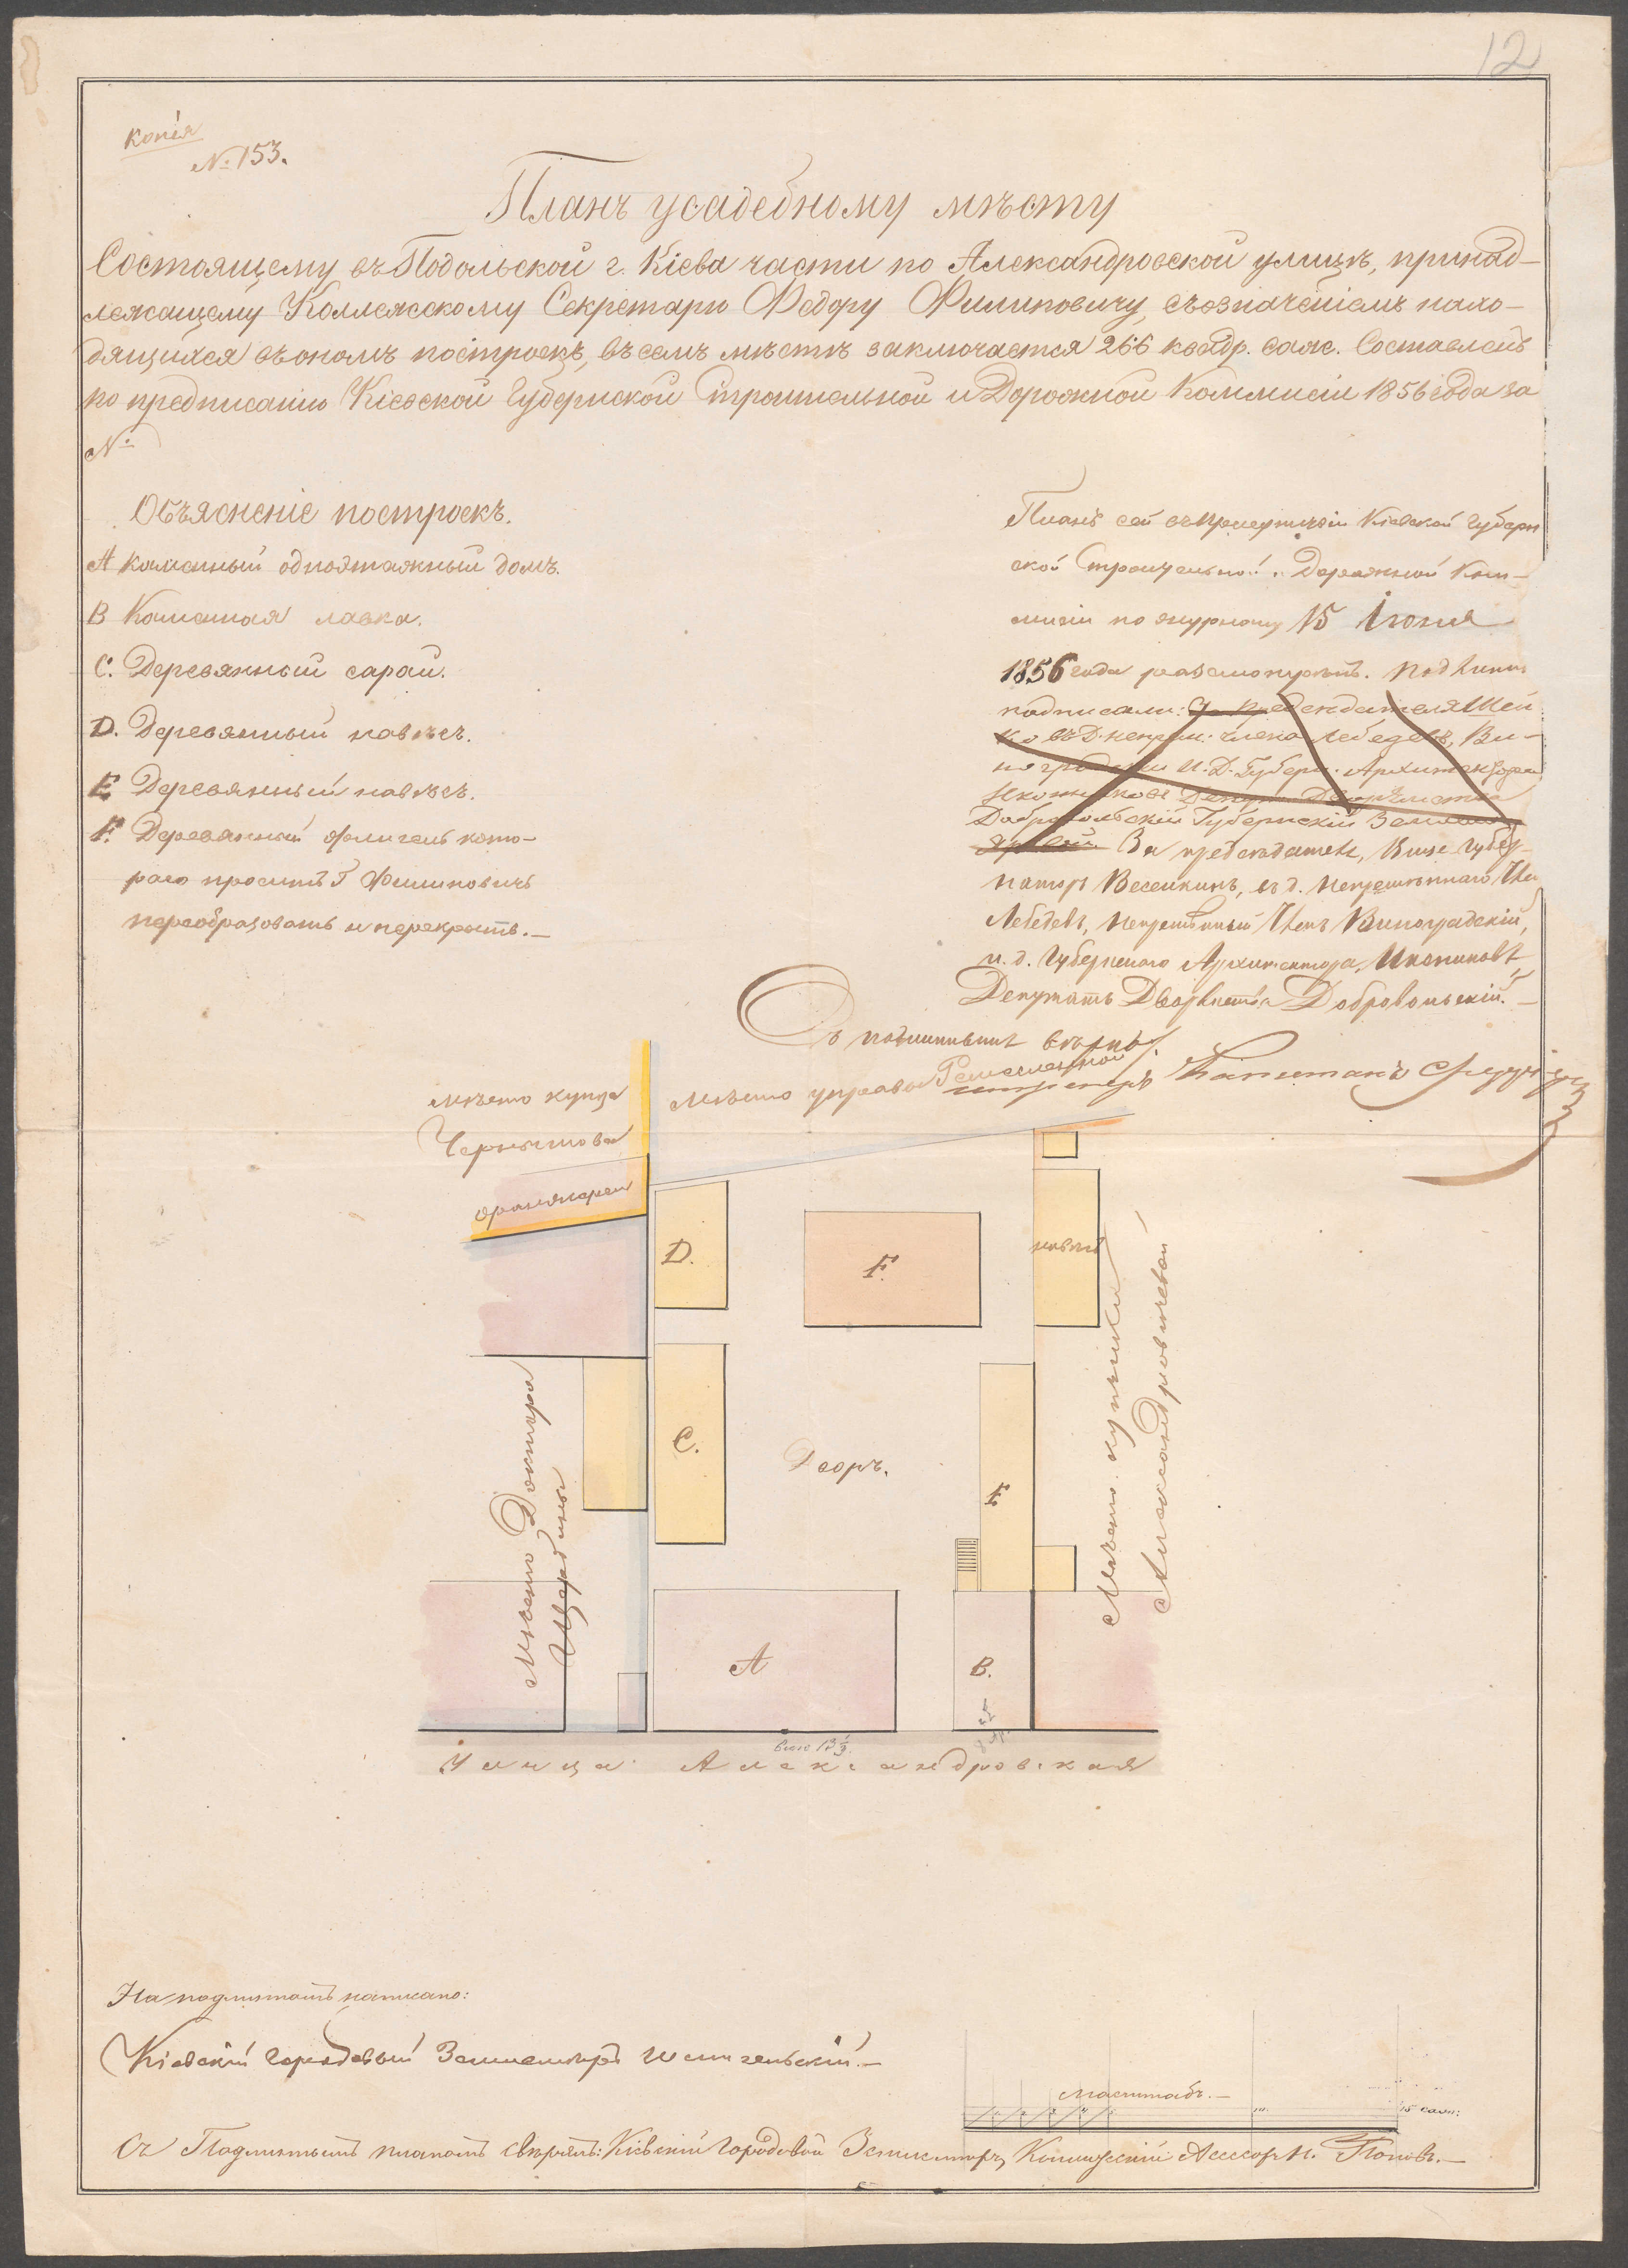 12
Копія
№ 153.
Планъ усадебному мѣсту
Состоящему въ Подольской г. Кіева части по Александровской улицѣ, принад-
лежащему Коллежскому Секретарю Федору Филиповичу, съ означеніемъ нахо-
дящихся въ ономъ построекъ, въ семъ мѣстѣ заключается 266 квадр. саж. Составленъ
по предписанію Кіевской Губернской Строительной и Дорожной Коммисіи 1856 года за
№
Объясненіе построекъ.
А Каменный одноэтажный домъ.
В Каменная лавка.
С. Деревянный сарай.
D. Деревянный навѣсъ.
E Деревянный навѣсъ.
F. Деревянный флигель кото-
раго проситъ Г Филиповичъ
переобразовать и перекрыть.—
Планъ сей въ присутствіи Кіевской Губерн
ской Строительной и Дорожной Ком-
мисіи по журналу 15 Іюня
1856 года разсмотрѣнъ. Подлин.
подписали: За Предсѣдателя
члена Лебедевъ, Ви-
И. Д. Губерн. Архитектора
Иконниковъ Депут. Дворянства
Добровольскій Губернскій
За предсѣдателя, Вице Губер-
наторъ Веселкинъ, въ д. Непремѣннаго Чле
Лебедевъ, Непремѣнный Членъ Виноградскій,
и. д. Губернскаго Архитектора, Иконниковъ,
Депутатъ Дворянства Добровольскій.—
Съ подлиннымъ вѣрно:
Капитанъ
мѣсто купца
Чернышова
мѣсто управы Ремесленной
оранжереи
D.
F.
навѣсъ
C.
Дворъ.
E
А
В.
Мѣсто Доктора
Щербины
Мѣсто купчихи
Александровичевой
всего 13 1/3
Улица Александровская
На подлинномъ написано:
Кіевскій Городовый Землемѣръ
Масштабъ.—
10
15 саж:
Съ Подлиннымъ планомъ свѣрялъ: Кіевскій Городовой Землемѣръ, Коллежскій Ассесоръ Н. Поповъ.—